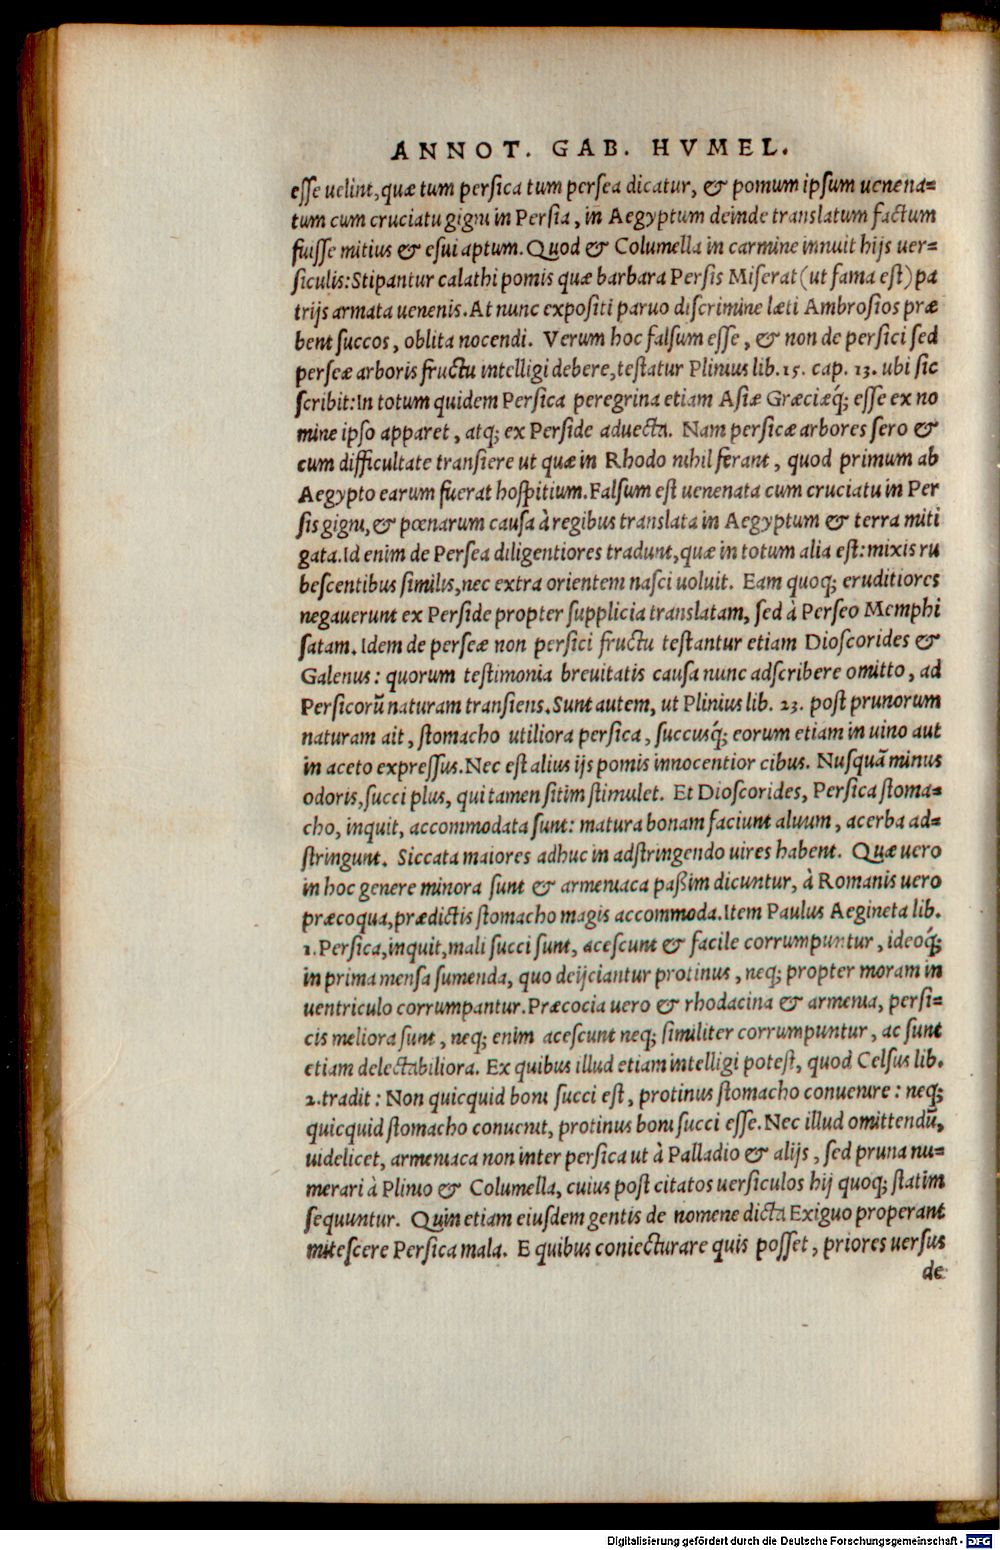 ANNOT. GAB. HVMEL.
esse uelint, quæ tum persica tum persea dicatur, & pomum ipsum uenena=
tum cum cruciatu gigni in Persia, in Aegyptum deinde translatum factum
fuisse mitius & esui aptum. Quod & Columella in carmine innuit hijs uer=
siculis: Stipantur calathi pomis quæ barbara Persis Miserat (ut fama est) pa
trijs armata uenenis. At nunc expositi paruo discrimine læti Ambrosios præ
bent succos, oblita nocendi. Verum hoc falsum esse, & non de persici sed
perseæ arboris fructu intelligi debere, testatur Plinius lib. 15. cap. 13. ubi sic
scribit: In totum quidem Persica peregrina etiam Asiæ Græciæq́; esse ex no
mine ipso apparet, atq; ex Perside aduecta. Nam persicæ arbores sero &
cum difficultate transiere ut quæ in Rhodo nihil ferant, quod primum ab
Aegypto earum fuerat hospitium. Falsum est uenenata cum cruciatu in Per
sis gigni, & pœnarum causa à regibus translata in Aegyptum & terra miti
gata. Id enim de Persea diligentiores tradunt, quæ in totum alia est: mixis ru
bescentibus similis, nec extra orientem nasci uoluit. Eam quoq; eruditiores
negauerunt ex Perside propter supplicia translatam, sed à Perseo Memphi
satam. Idem de perseæ non persici fructu testantur etiam Dioscorides &
Galenus: quorum testimonia breuitatis causa nunc adscribere omitto, ad
Persicorū naturam transiens. Sunt autem, ut Plinius lib. 23. post prunorum
naturam ait, stomacho utiliora persica, succusq́; eorum etiam in uino aut
in aceto expressus. Nec est alius ijs pomis innocentior cibus. Nusquā minus
odoris, succi plus, qui tamen sitim stimulet. Et Dioscorides, Persica stoma=
cho, inquit, accommodata sunt: matura bonam faciunt aluum, acerba ad=
stringunt. Siccata maiores adhuc in adstringendo uires habent. Quæ uero
in hoc genere minora sunt & armeniaca paßim dicuntur, à Romanis uero
præcoqua, prædictis stomacho magis accommoda. Item Paulus Aegineta lib.
1. Persica, inquit, mali succi sunt, acescunt & facile corrumpuntur, ideoq́;
in prima mensa sumenda, quo deijciantur protinus, neq; propter moram in
uentriculo corrumpantur. Præcocia uero & rhodacina & armenia, persi=
cis meliora sunt, neq; enim acescunt neq; similiter corrumpuntur, ac sunt
etiam delectabiliora. Ex quibus illud etiam intelligi potest, quod Celsus lib.
2. tradit: Non quicquid boni succi est, protinus stomacho conuenire: neq;
quicquid stomacho conuenit, protinus boni succi esse. Nec illud omittendū,
uidelicet, armeniaca non inter persica ut à Palladio & alijs, sed pruna nu=
merari à Plinio & Columella, cuius post citatos uersiculos hij quoq; statim
sequuntur. Quin etiam eiusdem gentis de nomene dicta Exiguo properant
mitescere Persica mala. E quibus coniecturare quis posset, priores uersus
de
Digitalisierung gefördert durch die Deutsche Forschungsgemeinschaft - DFG